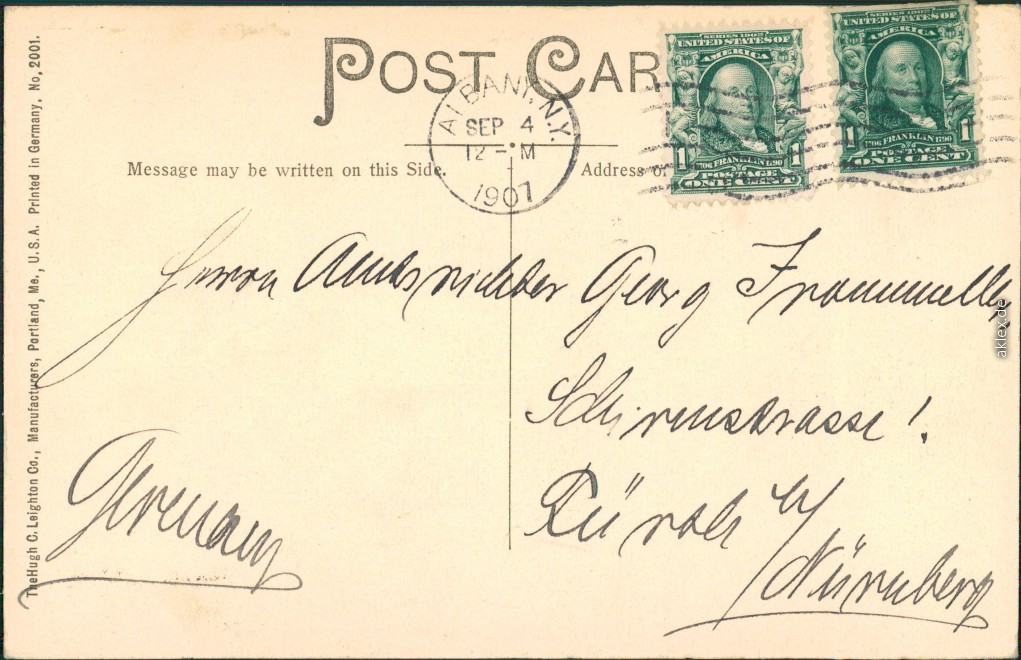 POST CAR
ALBANY, N.Y.
SEP 4
12 - M
1907
SERIES 1902
UNITED STATES OF
AMERICA
1706 FRANKLIN 1790
1 1
POSTAGE
ONE CENT
SERIES 1902
UNITED STATES OF
AMERICA
1706 FRANKLIN 1790
1 1
POSTAGE
ONE CENT
Message may be written on this Side.
Address o
Herrn Amtsrichter Georg Frommeller
Schirmstrasse 1.
Fürth b/
Nürnberg
Germany
The Hugh C. Leighton Co., Manufacturers, Portland, Me., U.S.A. Printed in Germany. No, 2001.
aklex.de